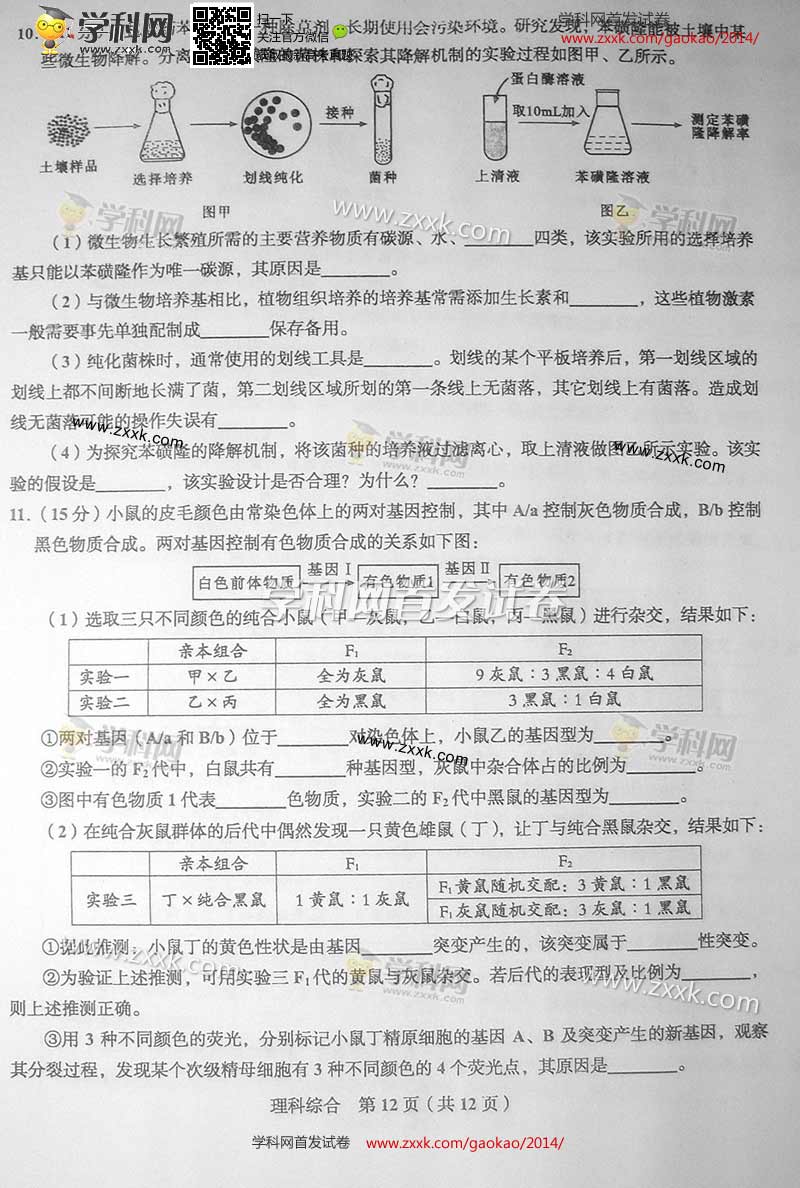 学科网
扫一扫
关注官方微信
学科网首发试卷
www.zxxk.com/gaokao/2014/
10.
除草剂,长期使用会污染环境。研究发现,苯磺隆能被土壤中某
些微生物降解。分离
探索其降解机制的实验过程如图甲、乙所示。
蛋白酶溶液
接种
取10mL加入
测定苯磺
隆降解率
土壤样品
选择培养
划线纯化
菌种
上清液
苯磺隆溶液
图甲
图乙
学科网
www.zxxk.com
学科网
(1)微生物生长繁殖所需的主要营养物质有碳源、水、________四类,该实验所用的选择培养
基只能以苯磺隆作为唯一碳源,其原因是________。
(2)与微生物培养基相比,植物组织培养的培养基常需添加生长素和________,这些植物激素
一般需要事先单独配制成________保存备用。
(3)纯化菌株时,通常使用的划线工具是________。划线的某个平板培养后,第一划线区域的
划线上都不间断地长满了菌,第二划线区域所划的第一条线上无菌落,其它划线上有菌落。造成划
线无菌落可能的操作失误有________。
www.zxxk.com
学科网
www.zxxk.com
(4)为探究苯磺隆的降解机制,将该菌种的培养液过滤离心,取上清液做图乙所示实验。该实
验的假设是________,该实验设计是否合理?为什么?________。
11.(15分)小鼠的皮毛颜色由常染色体上的两对基因控制,其中 A/a 控制灰色物质合成,B/b 控制
黑色物质合成。两对基因控制有色物质合成的关系如下图:
白色前体物质 基因Ⅰ 有色物质1 基因Ⅱ 有色物质2
学科网首发试卷
(1)选取三只不同颜色的纯合小鼠(甲—灰鼠,乙—白鼠,丙—黑鼠)进行杂交,结果如下:
亲本组合 F₁ F₂
实验一 甲×乙 全为灰鼠 9灰鼠:3黑鼠:4白鼠
实验二 乙×丙 全为黑鼠 3黑鼠:1白鼠
学科网
www.zxxk.com
学科网
①两对基因(A/a 和 B/b)位于________对染色体上,小鼠乙的基因型为________。
②实验一的 F₂ 代中,白鼠共有________种基因型,灰鼠中杂合体占的比例为________。
③图中有色物质 1 代表________色物质,实验二的 F₂ 代中黑鼠的基因型为________。
(2)在纯合灰鼠群体的后代中偶然发现一只黄色雄鼠(丁),让丁与纯合黑鼠杂交,结果如下:
亲本组合 F₁ F₂
实验三 丁×纯合黑鼠 1黄鼠:1灰鼠 F₁黄鼠随机交配:3黄鼠:1黑鼠
F₁灰鼠随机交配:3灰鼠:1黑鼠
①据此推测:小鼠丁的黄色性状是由基因________突变产生的,该突变属于________性突变。
www.zxxk.com
学科网
www.zxxk.com
②为验证上述推测,可用实验三 F₁ 代的黄鼠与灰鼠杂交。若后代的表现型及比例为________,
则上述推测正确。
③用 3 种不同颜色的荧光,分别标记小鼠丁精原细胞的基因 A、B 及突变产生的新基因,观察
其分裂过程,发现某个次级精母细胞有 3 种不同颜色的 4 个荧光点,其原因是________。
理科综合 第12页(共12页)
学科网首发试卷 www.zxxk.com/gaokao/2014/